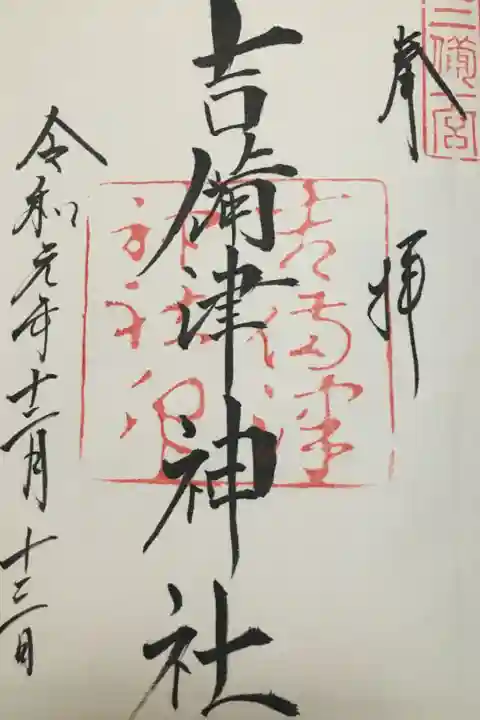 三備一宮
奉拝
吉備津神社
吉備津
神社印
令和元年十二月十二日